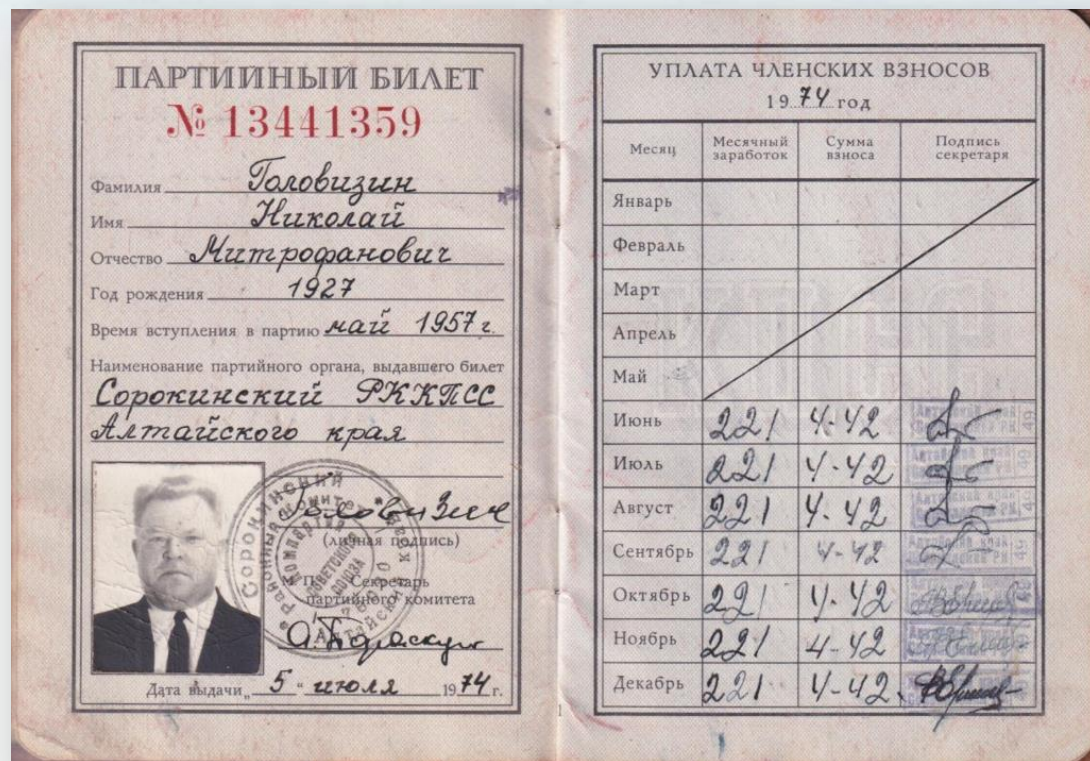 ПАРТИЙНЫЙ БИЛЕТ
№ 13441359
Фамилия Головизин
Имя Николай
Отчество Митрофанович
Год рождения 1927
Время вступления в партию май 1957 г.
Наименование партийного органа, выдавшего билет
Сорокинский РККПСС
Алтайского края
Головизин
(личная подпись)
М. П. Секретарь
партийного комитета
Дата выдачи „5“ июля 1974 г.
СОРОКИНСКИЙ
Районный комитет
Компартия
СОВЕТСКОГО
СОЮЗА
1
УПЛАТА ЧЛЕНСКИХ ВЗНОСОВ
1974 год
Месяц Месячный заработок Сумма взноса Подпись секретаря
Январь
Февраль
Март
Апрель
Май
Июнь 221 4-42
Июль 221 4-42
Август 221 4-42
Сентябрь 221 4-42
Октябрь 221 4-42
Ноябрь 221 4-42
Декабрь 221 4-42